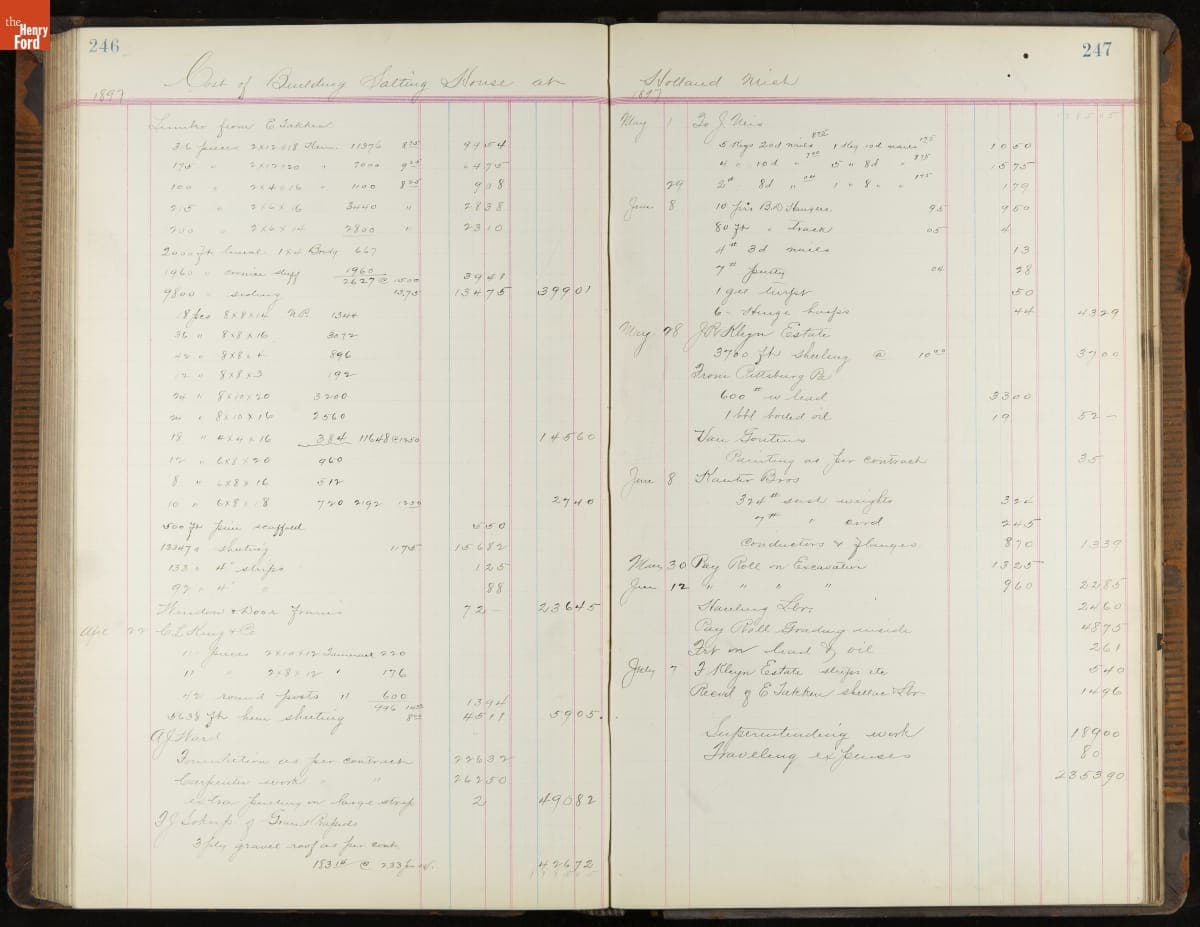 the
Henry
Ford
246
Cost of Building Salting House at
1897
Lumber from E Takken
36 pieces 2x12x18 Hem. 11376 8 75 9954
175 " 2x12x20 " 7000 9 25 6475
100 " 2x4x16 " 1100 8 25 908
215 " 2x6x16 3440 " 2838
200 " 2x6x14 2800 " 2310
2000 ft lineal 1x4 667
1960 " cornice stuff 1960
2627 @ 1500 3941
9800 " siding 1375 13475 39901
18 pcs 8x8x14 1344
36 " 8x8x16 3072
42 " 8x8x4 896
12 " 8x8x3 192
24 " 8x10x20 3200
24 " 8x10x16 2560
18 " 4x4x16 384 11648 @ 1250 14560
12 " 6x8x20 960
8 " 6x8x16 512
10 " 6x8x18 720 2192 1250 2740
500 ft pine scaffold 550
13347 " sheeting 1175 15682
133 " 4" strips 125
92 " 4" " 88
Window & Door Frames 72 - 23645
Apl 22 C. L. King & Co
11 pieces 2x10x12 220
11 " 2x8x12 " 176
42 round posts 11 600
996 1400 1394
5638 ft hem sheeting 8 00 4511 5905
A J Ward
Foundation as per contract 22632
Carpenter work " " 26250
extra on large strip 2 49082
of Grand Rapids
3 ply gravel roof as per cont.
183 @ 233 per sq. 42672
247
Holland Mich
1897
May 1 To J. Nies
5 Kegs 20d nails 1 Keg 10d nails 175 1050
4 " 10d " 5 " 8d " 175 1575
29 2# 8d " 1 " 8 " " 175 179
June 8 10 prs B.D. Hangers 95 950
80 ft " track 05 4
4# 3d nails 13
7# putty 04 28
1 gal turpt 50
6 - Hinge hasps 44 4329
May 28 Kleyn Estate
3700 ft sheeting @ 10 00 3700
From Pittsburg Pa
600# w lead 3300
1 bbl boiled oil 19 52 -
Van
Painting as per contract 35
June 8 Kanter Bros
324# sash weights 324
7# " cord 245
Conductors & flanges 870 1339
May 30 Pay Roll on Excavation 1325
Jun 12 " " " " 960 2285
Hauling Lbr. 2460
Pay Roll Grading inside 4875
Frt on lead & oil 261
July 7 Kleyn Estate strips etc 540
Recvd of E Takken shellac &c 1496
Superintending work 18900
Traveling expenses 80
235390